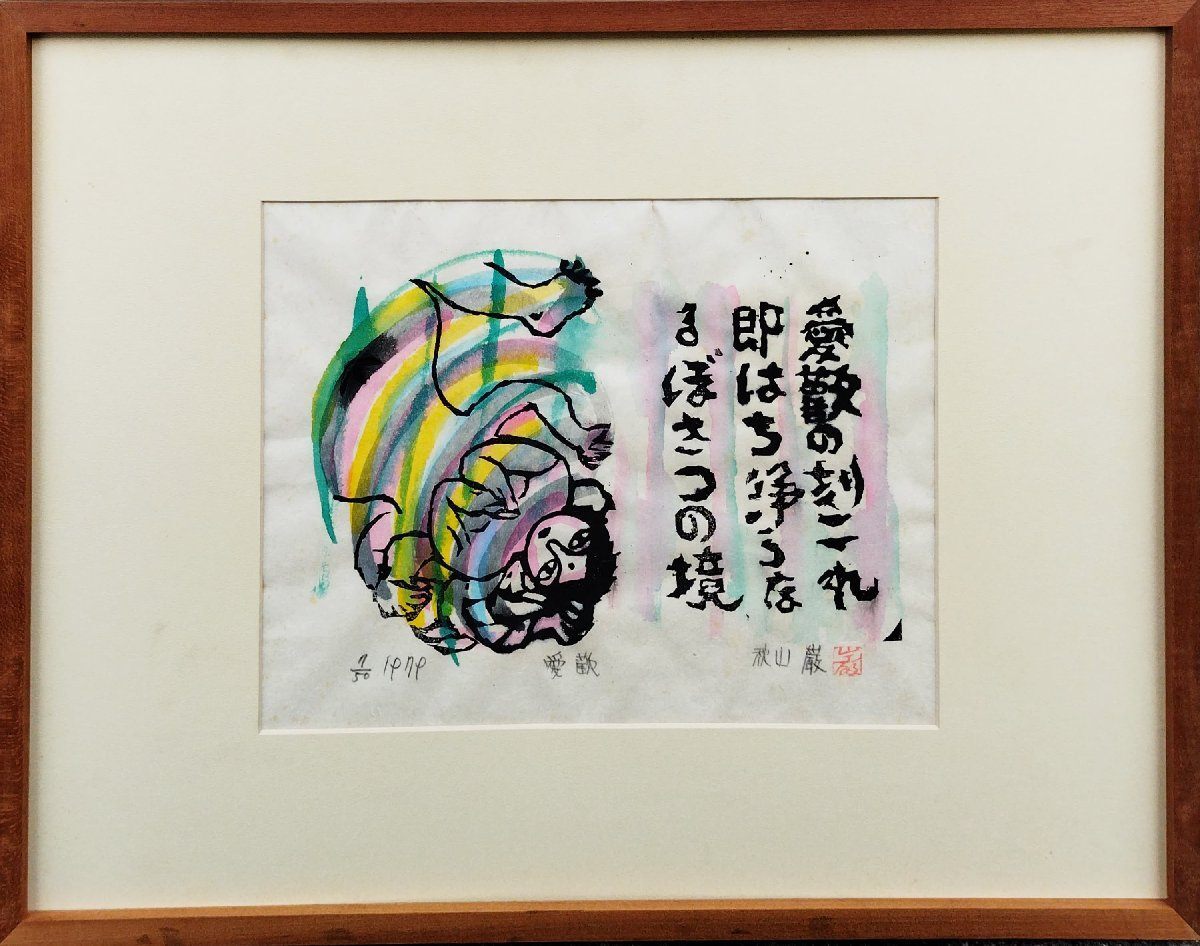 愛歡の刻これ
即はち浄らな
るぼさつの境
7/50 1979
愛歓
秋山巌